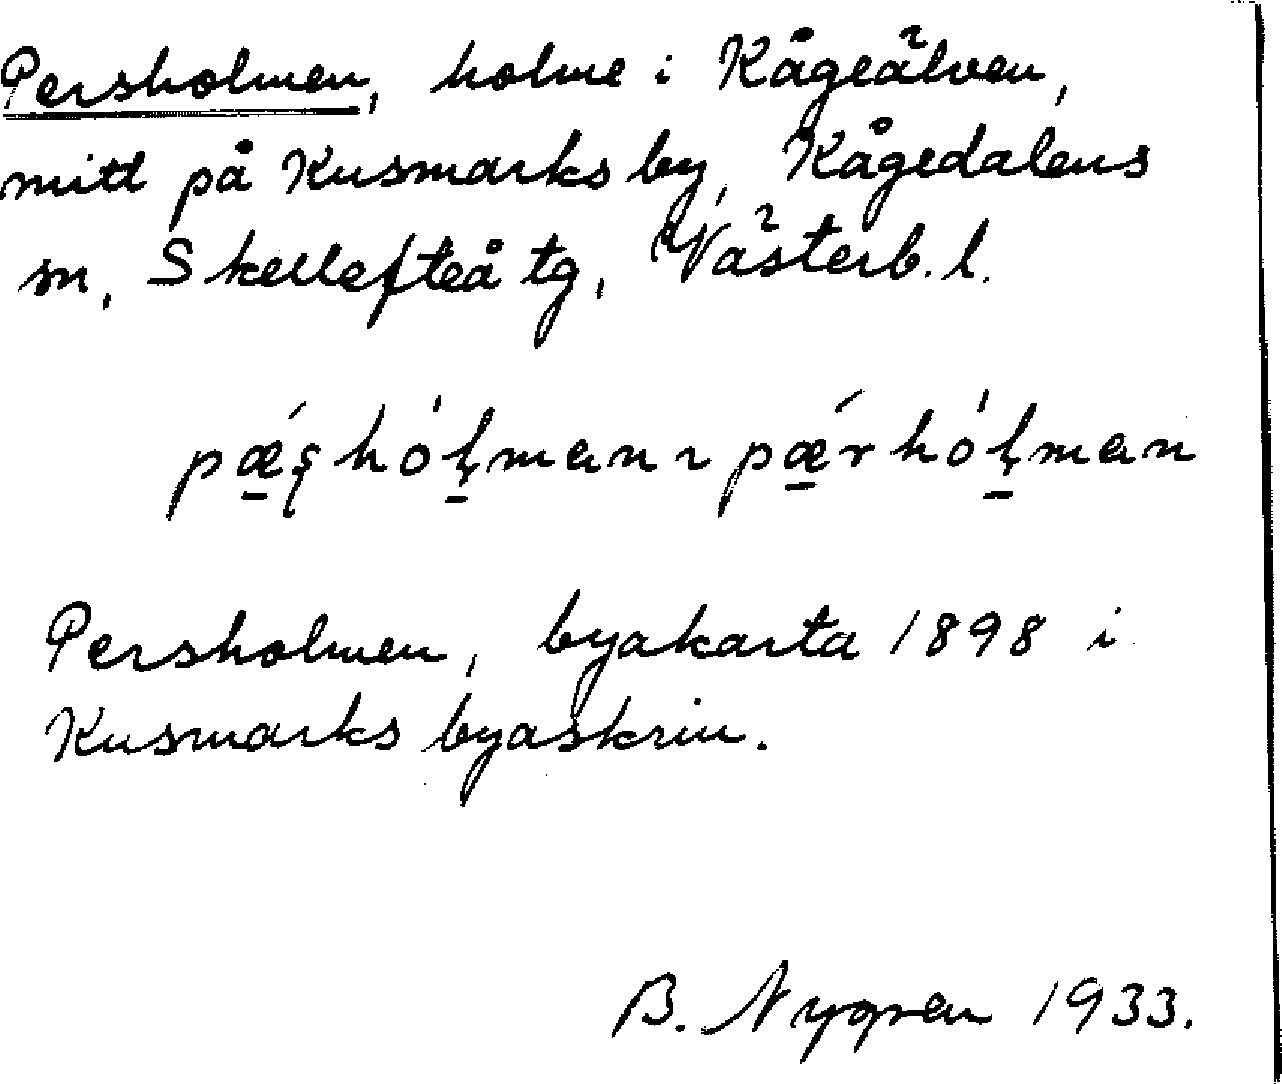 Persholmen, holme i Kågeälven,
mitt på Kusmarks by, Kågedalens
sn, Skellefteå tg, Västerb. l.
pǽ̱ʂhó̱ɭman ~ pǽ̱rhó̱ɭman
Persholmen, byakarta 1898 i
Kusmarks byaskrin.
B. Nygren 1933.